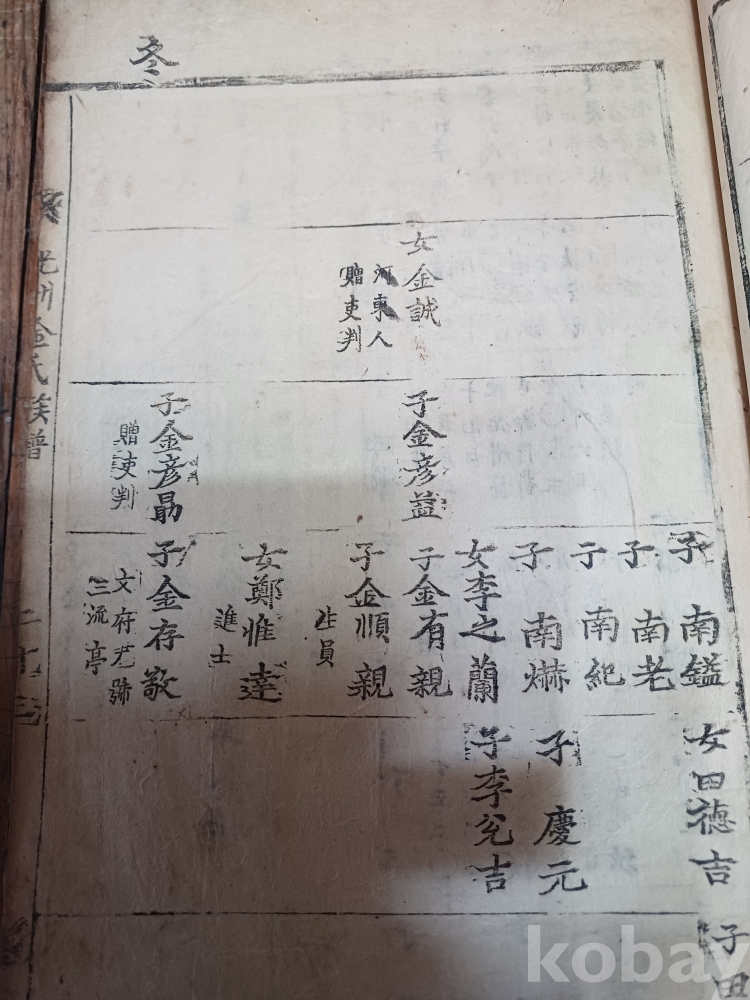 冬
女金誠
河東人
贈吏判
子金彦益
子金彦勗
贈吏判
子 南鎰
子 南老
子 南紀
子 南爀
女李之蘭
子金有親
子金順親
生員
女鄭惟達
進士
子金存敬
文府尹號
三流亭
女田德吉
子 慶元
子李允吉
子田
光州金氏族譜
二十三
kobay